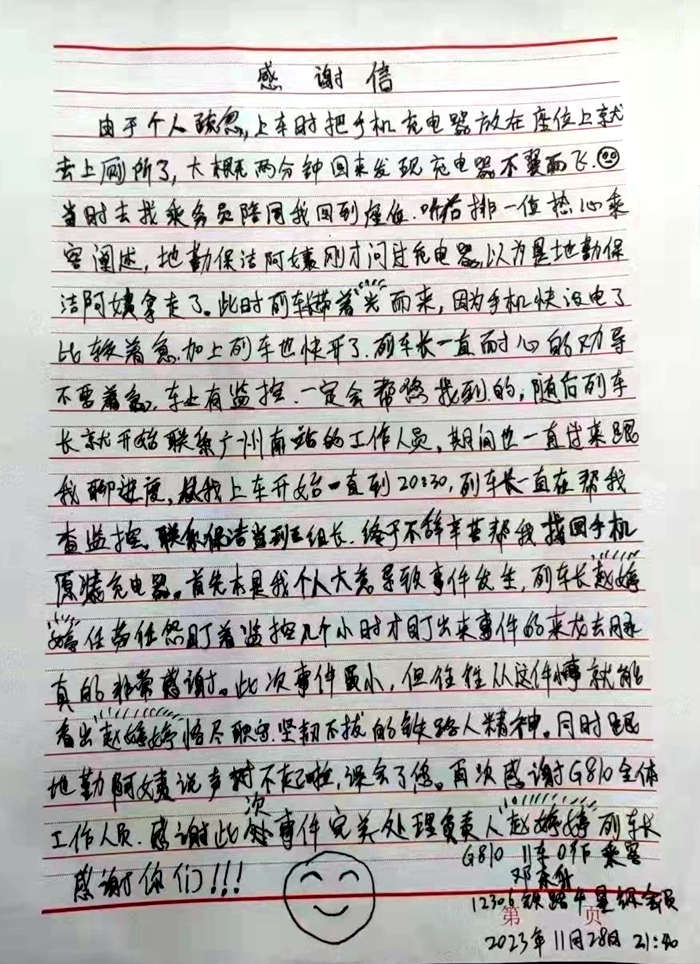 感谢信
由于个人疏忽,上车时把手机充电器放在座位上就
去上厕所了,大概两分钟回来发现充电器不翼而飞.
当时去找乘务员陪同我回到座位.听后排一位热心乘
客阐述,地勤保洁阿姨刚才问过充电器,以为是地勤保
洁阿姨拿走了。此时列车带着光而来,因为手机快没电了
比较着急.加上列车也快开了.列车长一直耐心的劝导
不要着急,车上有监控.一定会帮您找到的;随后列车
长就开始联系广州南站的工作人员,期间也一直过来跟
我聊进度,从我上车开始一直到20:30,列车长一直在帮我
查监控、联系保洁当班组长.终于不辞辛苦帮我找回手机
原装充电器。首先本是我个人大意导致事件发生,列车长赵婷
婷任劳任怨盯着监控几个小时才盯出来事件的来龙去脉
真的非常感谢。此次事件虽小,但往往从这件小事就能
看出赵婷婷恪尽职守.坚韧不拔的铁路人精神。同时跟
地勤阿姨说声对不起啦,误会了您。再次感谢G810全体
工作人员.感谢此次事件完美处理负责人赵婷婷列车长
感谢你们!!!
G810 11车0 乘客
邓
12306铁路 星级会员
第 页
2023年11月28日 21:40